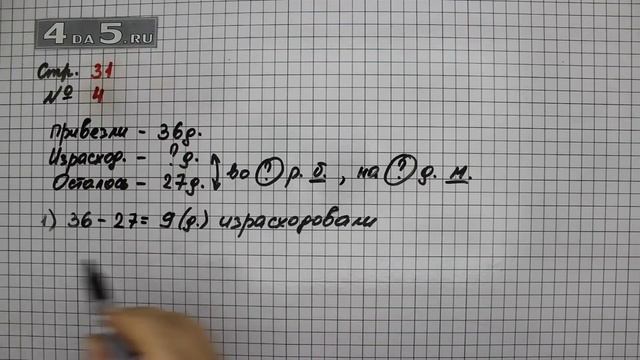 4 DA 5.RU
Стр. 31
№ 4
Привезли - 36д.
Израсход. - ? д.
Осталось - 27д.
во ? р. б. , на ? д. м.
1) 36 - 27 = 9 (д.) израсходовали